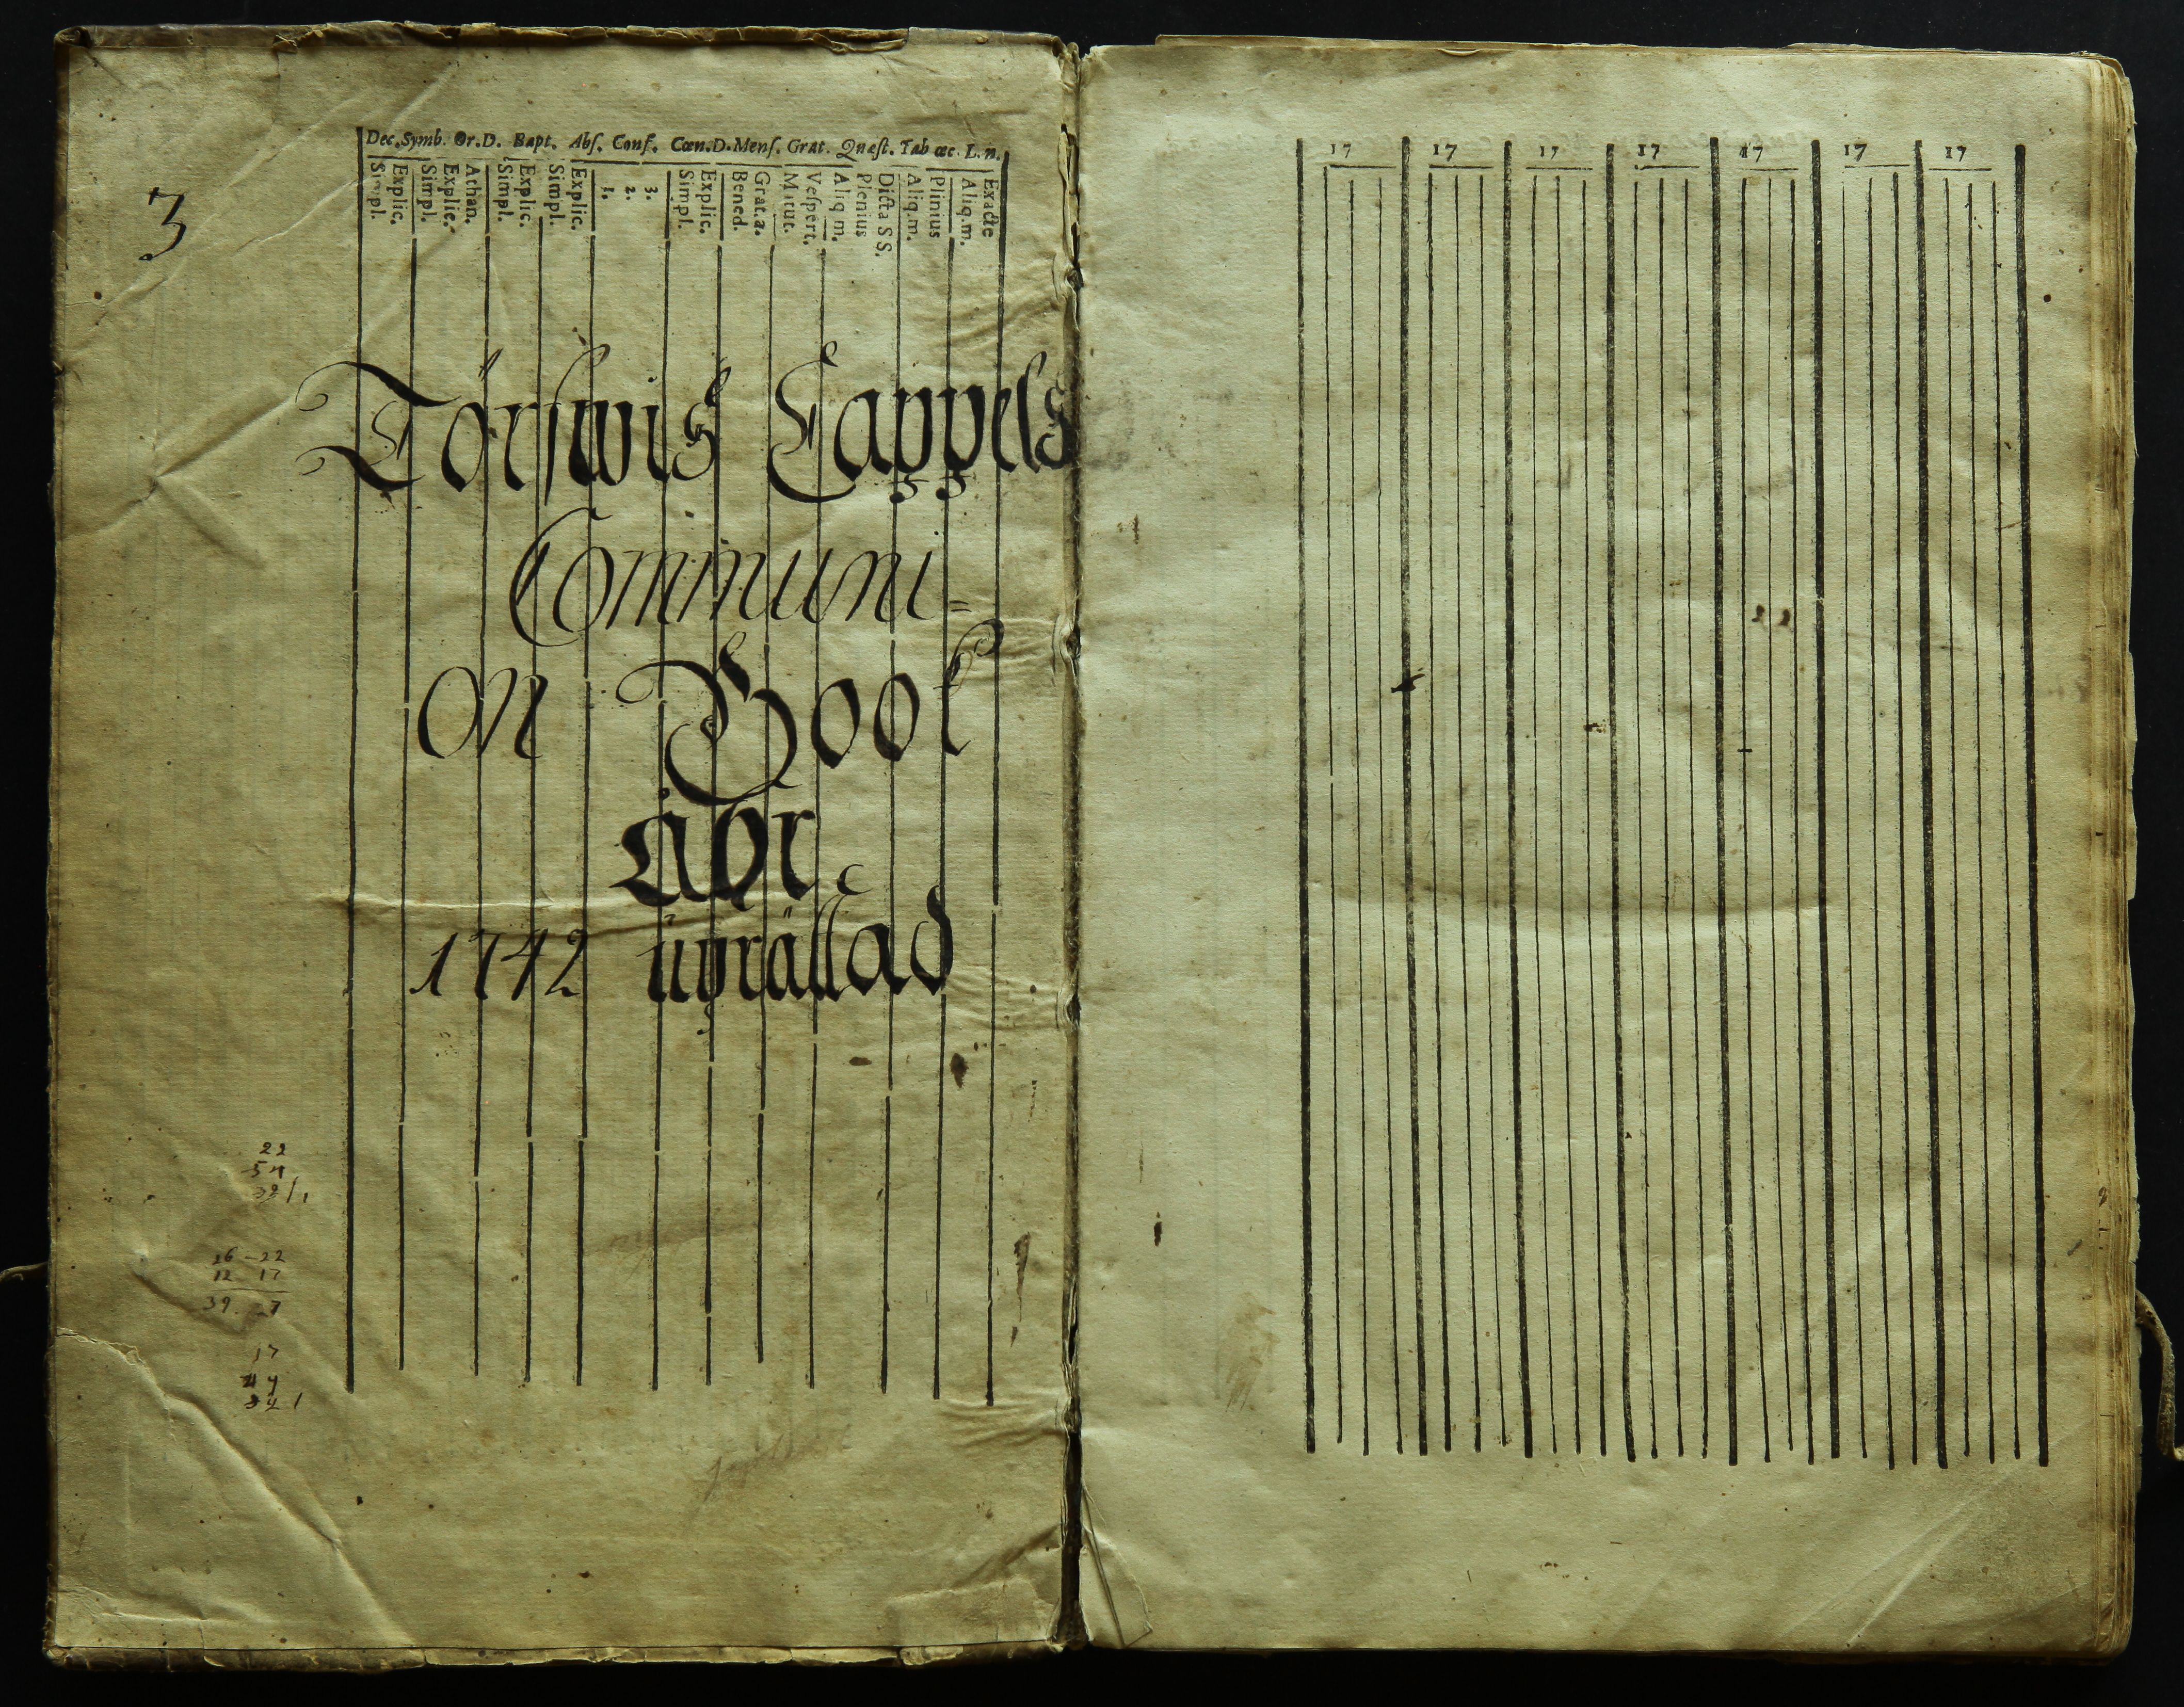 Dec. Symb. Or. D. Bapt. Abs. Conf. Cœn. D. Mens. Grat. Quæst. Tab œc. L. n.
Simpl. Explic. Simpl. Explic. Athan. Simpl. Explic. Simpl. Explic. 1. 2. 3. Simpl. Explic. Bened. Grat. a. Matut. Vespert. Aliq m. Plenius Dicta S S. Aliq. m. Plinius Aliq. m. Exacte
3
Törswis Cappels
Communi=
on Book
åhr
1742 uprättad
22
16 - 22
12 17
39
17
17 17 17 17 17 17 17